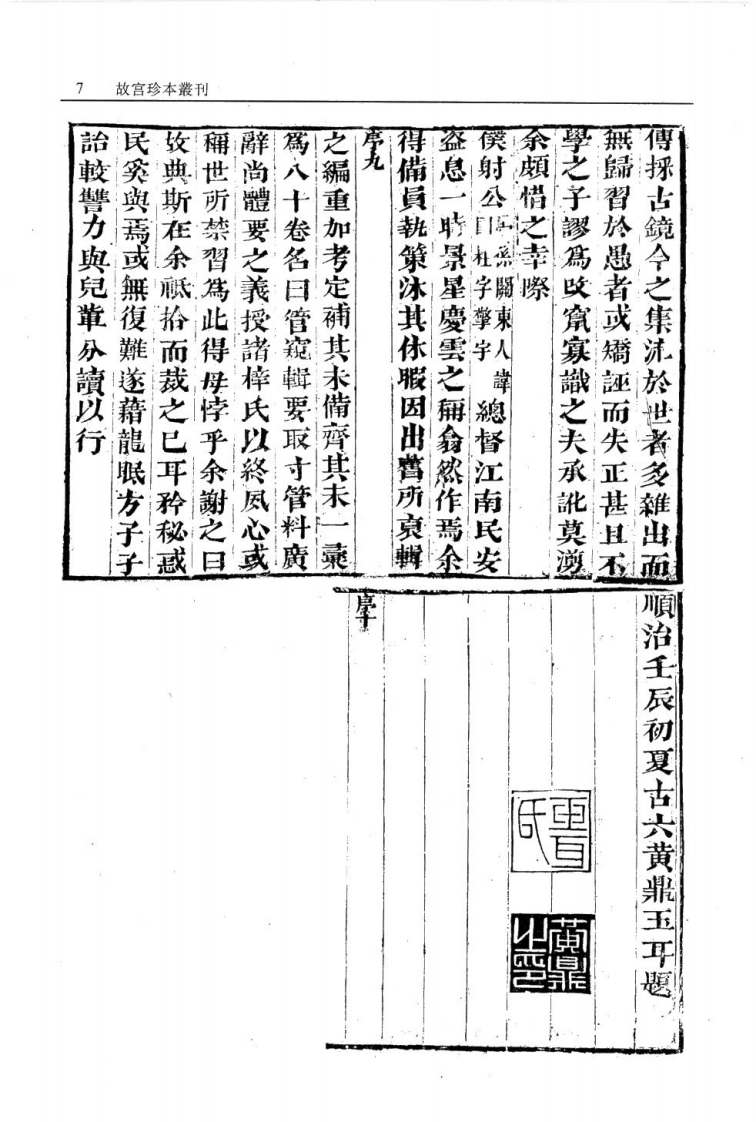 7 故宫珍本叢刊
傳採古鏡今之集沠於世者多雜出而
無歸習於愚者或矯誣而失正甚且不
學之子謬爲改竄寡識之夫承訛莫溯
余頗惜之幸際
僕射公 關東人諱
柱字擎宇 總督江南民安
盜息一時景星慶雲之稱翕然作焉余
得備員執策沐其休暇因出舊所裒輯
序九
之編重加考定補其未備齊其未一彚
爲八十卷名曰管窺輯要取寸管料廣
辭尚體要之義授諸梓氏以終夙心或
稱世所禁習爲此得毋悖乎余謝之曰
故典斯在余祗拾而裁之已耳矜秘惑
民奚與焉或無復難遂藉龍眠方子子
詒較讐力與兒輩分讀以行
順治壬辰初夏古六黄鼎玉耳題
玉耳氏
黃鼎之印
序十